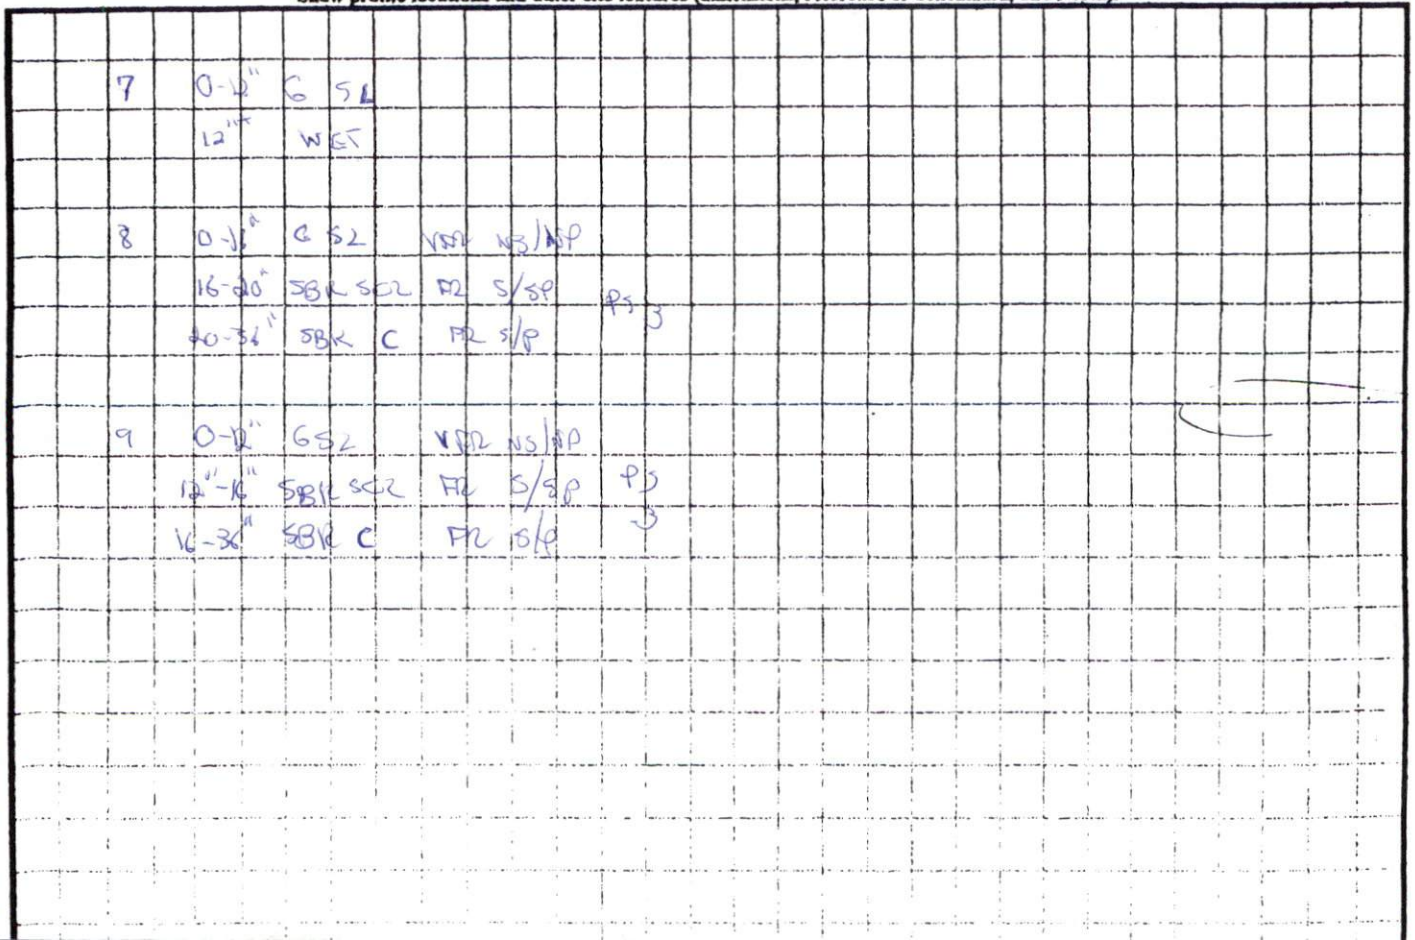 7 0-12" G SL
12"+ WET
8 0-16" G SL VFR NS/NP
16-20" SBK SCL FR S/SP
PS .3
20-36" SBK C FR S/P
9 0-12" G SL VFR NS/NP
12"-16" SBK SCL FR S/SP PS
.3
16-36" SBK C FR S/P